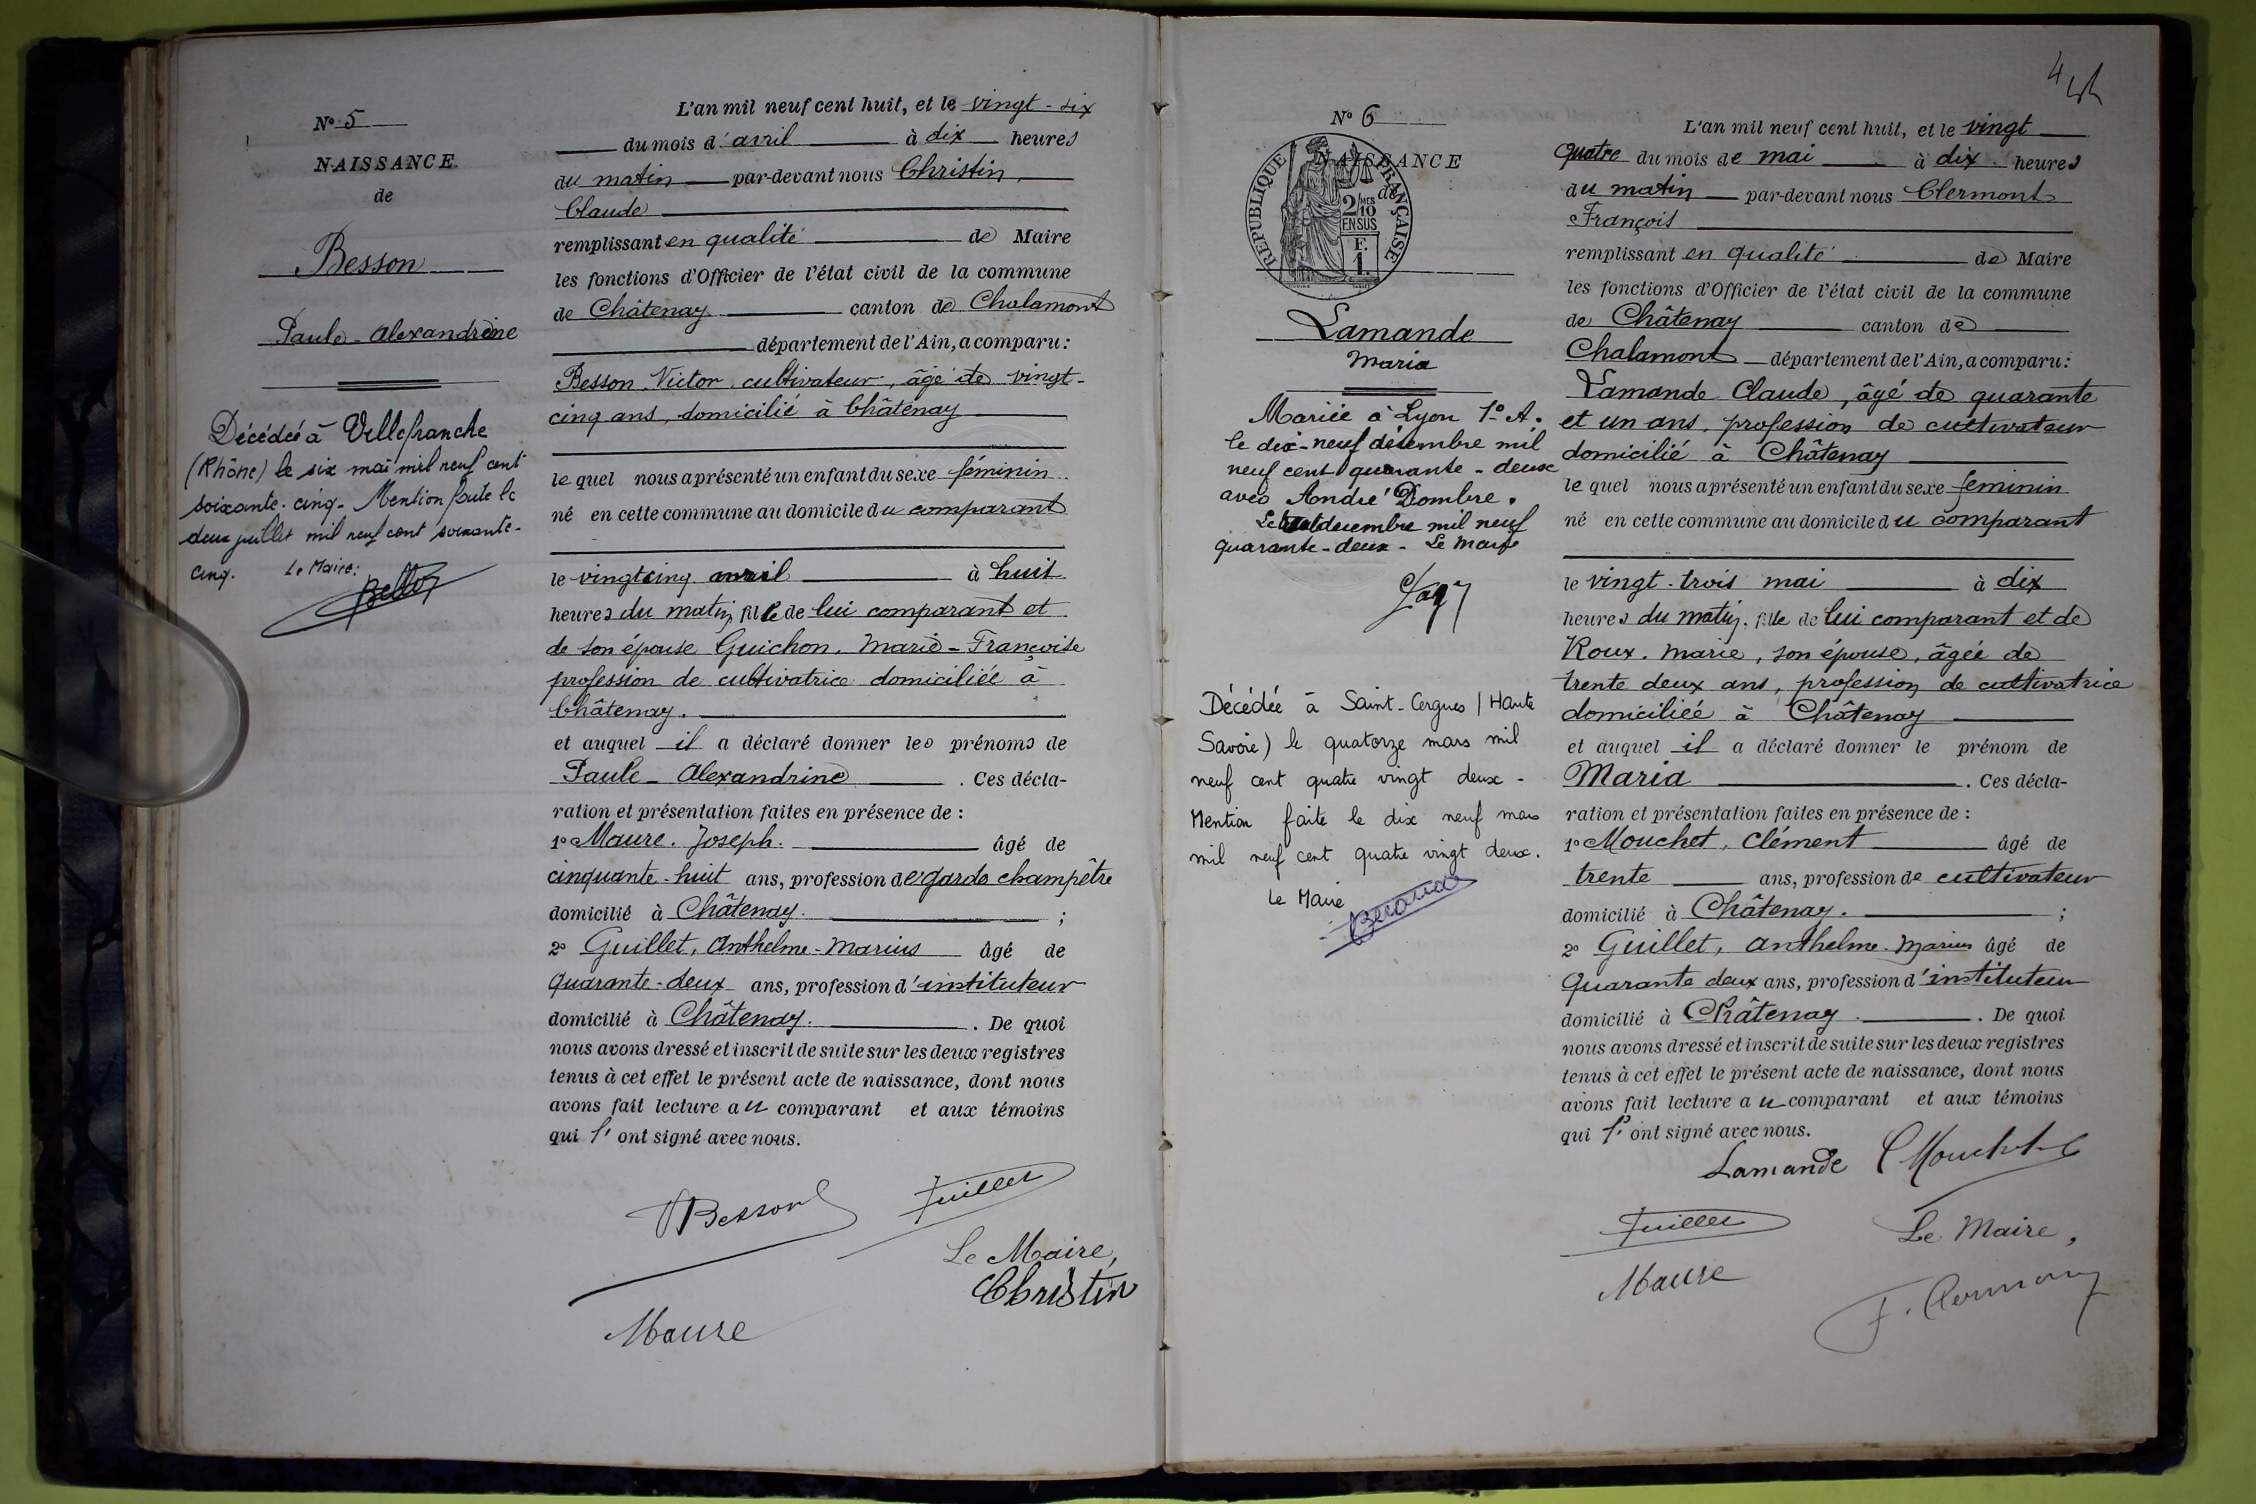 N° 5
NAISSANCE
de
Besson
Paule-Alexandrine
Décédée à Villefranche
(Rhône) le six mai mil neuf cent
soixante-cinq. Mention faite le
deux juillet mil neuf cent soixante-
cinq. Le Maire:
L'an mil neuf cent huit, et le vingt-six
du mois d'avril à dix heures
du matin par-devant nous Christin
Claude
remplissant en qualité de Maire
les fonctions d'Officier de l'état civil de la commune
de Châtenay canton de Chalamont
département de l'Ain, a comparu:
Besson Victor, cultivateur, âgé de vingt-
cinq ans, domicilié à Châtenay
lequel nous a présenté un enfant du sexe féminin
né en cette commune au domicile du comparant
le vingt cinq avril à huit
heures du matin, fille de lui comparant et
de son épouse Guichon, Marie-Françoise
profession de cultivatrice domiciliée à
Châtenay.
et auquel il a déclaré donner les prénoms de
Paule-Alexandrine. Ces décla-
ration et présentation faites en présence de:
1° Maure. Joseph. âgé de
cinquante-huit ans, profession de garde champêtre
domicilié à Châtenay. ;
2° Guillet, Anthelme-Marius âgé de
quarante-deux ans, profession d'instituteur
domicilié à Châtenay. . De quoi
nous avons dressé et inscrit de suite sur les deux registres
tenus à cet effet le présent acte de naissance, dont nous
avons fait lecture au comparant et aux témoins
qui l'ont signé avec nous.
VBesson
Guillet
Le Maire,
Christin
Maure
4
N° 6
NAISSANCE
de
RÉPUBLIQUE FRANÇAISE
2/10 MES
EN SUS
F.
1.
Lamande
Maria
Mariée à Lyon 1° A.
le dix-neuf décembre mil
neuf cent quarante-deux
avec André Dombre.
Le décembre mil neuf
quarante-deux - Le Maire
Décédée à Saint-Cergues (Haute
Savoie) le quatorze mars mil
neuf cent quatre vingt deux -
Mention faite le dix neuf mars
mil neuf cent quatre vingt deux.
Le Maire
L'an mil neuf cent huit, et le vingt
quatre du mois de mai à dix heures
du matin par-devant nous Clermont
François
remplissant en qualité de Maire
les fonctions d'Officier de l'état civil de la commune
de Châtenay canton de
Chalamont département de l'Ain, a comparu:
Lamande Claude, âgé de quarante
et un ans, profession de cultivateur
domicilié à Châtenay
lequel nous a présenté un enfant du sexe féminin
né en cette commune au domicile du comparant
le vingt-trois mai à dix
heures du matin, fille de lui comparant et de
Roux. Marie, son épouse, âgée de
trente deux ans, profession de cultivatrice
domiciliée à Châtenay
et auquel il a déclaré donner le prénom de
Maria . Ces décla-
ration et présentation faites en présence de:
1° Mouchet, Clément âgé de
trente ans, profession de cultivateur
domicilié à Châtenay. ;
2° Guillet, Anthelme-Marius âgé de
quarante deux ans, profession d'instituteur
domicilié à Châtenay. . De quoi
nous avons dressé et inscrit de suite sur les deux registres
tenus à cet effet le présent acte de naissance, dont nous
avons fait lecture au comparant et aux témoins
qui l'ont signé avec nous.
Lamande CMouchet
Guillet
Le Maire,
Maure
F. Clermont